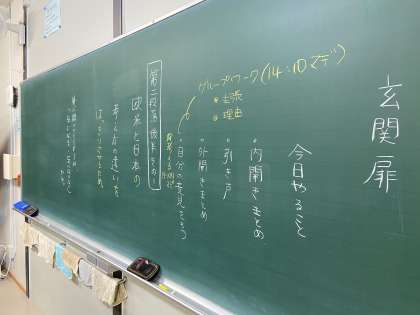 玄関扉
今日やること
・内開きまとめ
・引き戸
・外開きまとめ
・自分の意見をもつ
グループワーク(14:10マデ)
・主張
・理由
第二段落後半まとめ
欧米と日本の
考え方の違いを
はっきりさせるため。